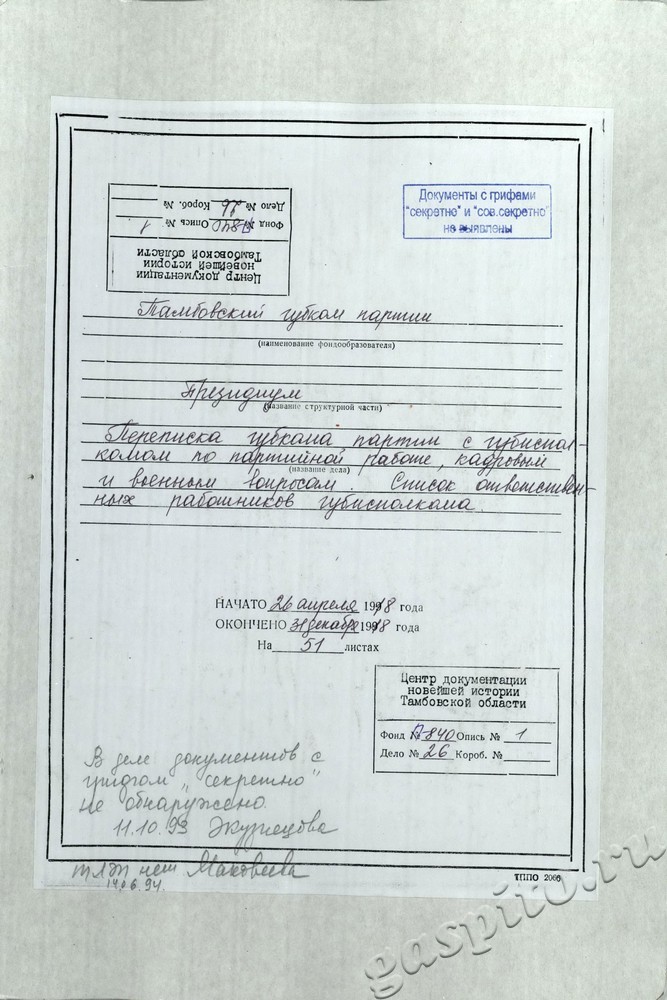 Центр документации
новейшей истории
Тамбовской области
Фонд № П-840 Опись № 1
Дело № 26 Короб. №
Документы с грифами
"секретно" и "сов.секретно"
не выявлены
Тамбовский губком партии
(наименование фондообразователя)
Президиум
(название структурной части)
Переписка губкома партии с губиспол-
комом по партийной работе, кадровым
(название дела)
и военным вопросам. Список ответствен-
ных работников губисполкома.
НАЧАТО 26 апреля 1918 года
ОКОНЧЕНО 31 декабря 1918 года
На 51 листах
Центр документации
новейшей истории
Тамбовской области
Фонд № П-840 Опись № 1
Дело № 26 Короб. №
В деле документов с
грифом "секретно"
не обнаружено.
11.10.93
Маковеева
14.06.94.
ТППО 2066
gaspito.ru